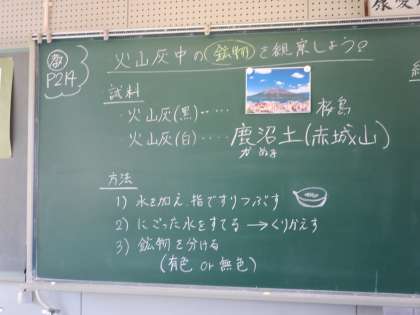 教
P214
火山灰中の鉱物を観察しよう。
試料
・火山灰(黒)‥‥ 桜島
火山灰(白)‥‥ 鹿沼土(赤城山)
かぬま
方法
1) 水を加え、指ですりつぶす
2) にごった水をすてる →くりかえす
3) 鉱物を分ける
(有色 or 無色)